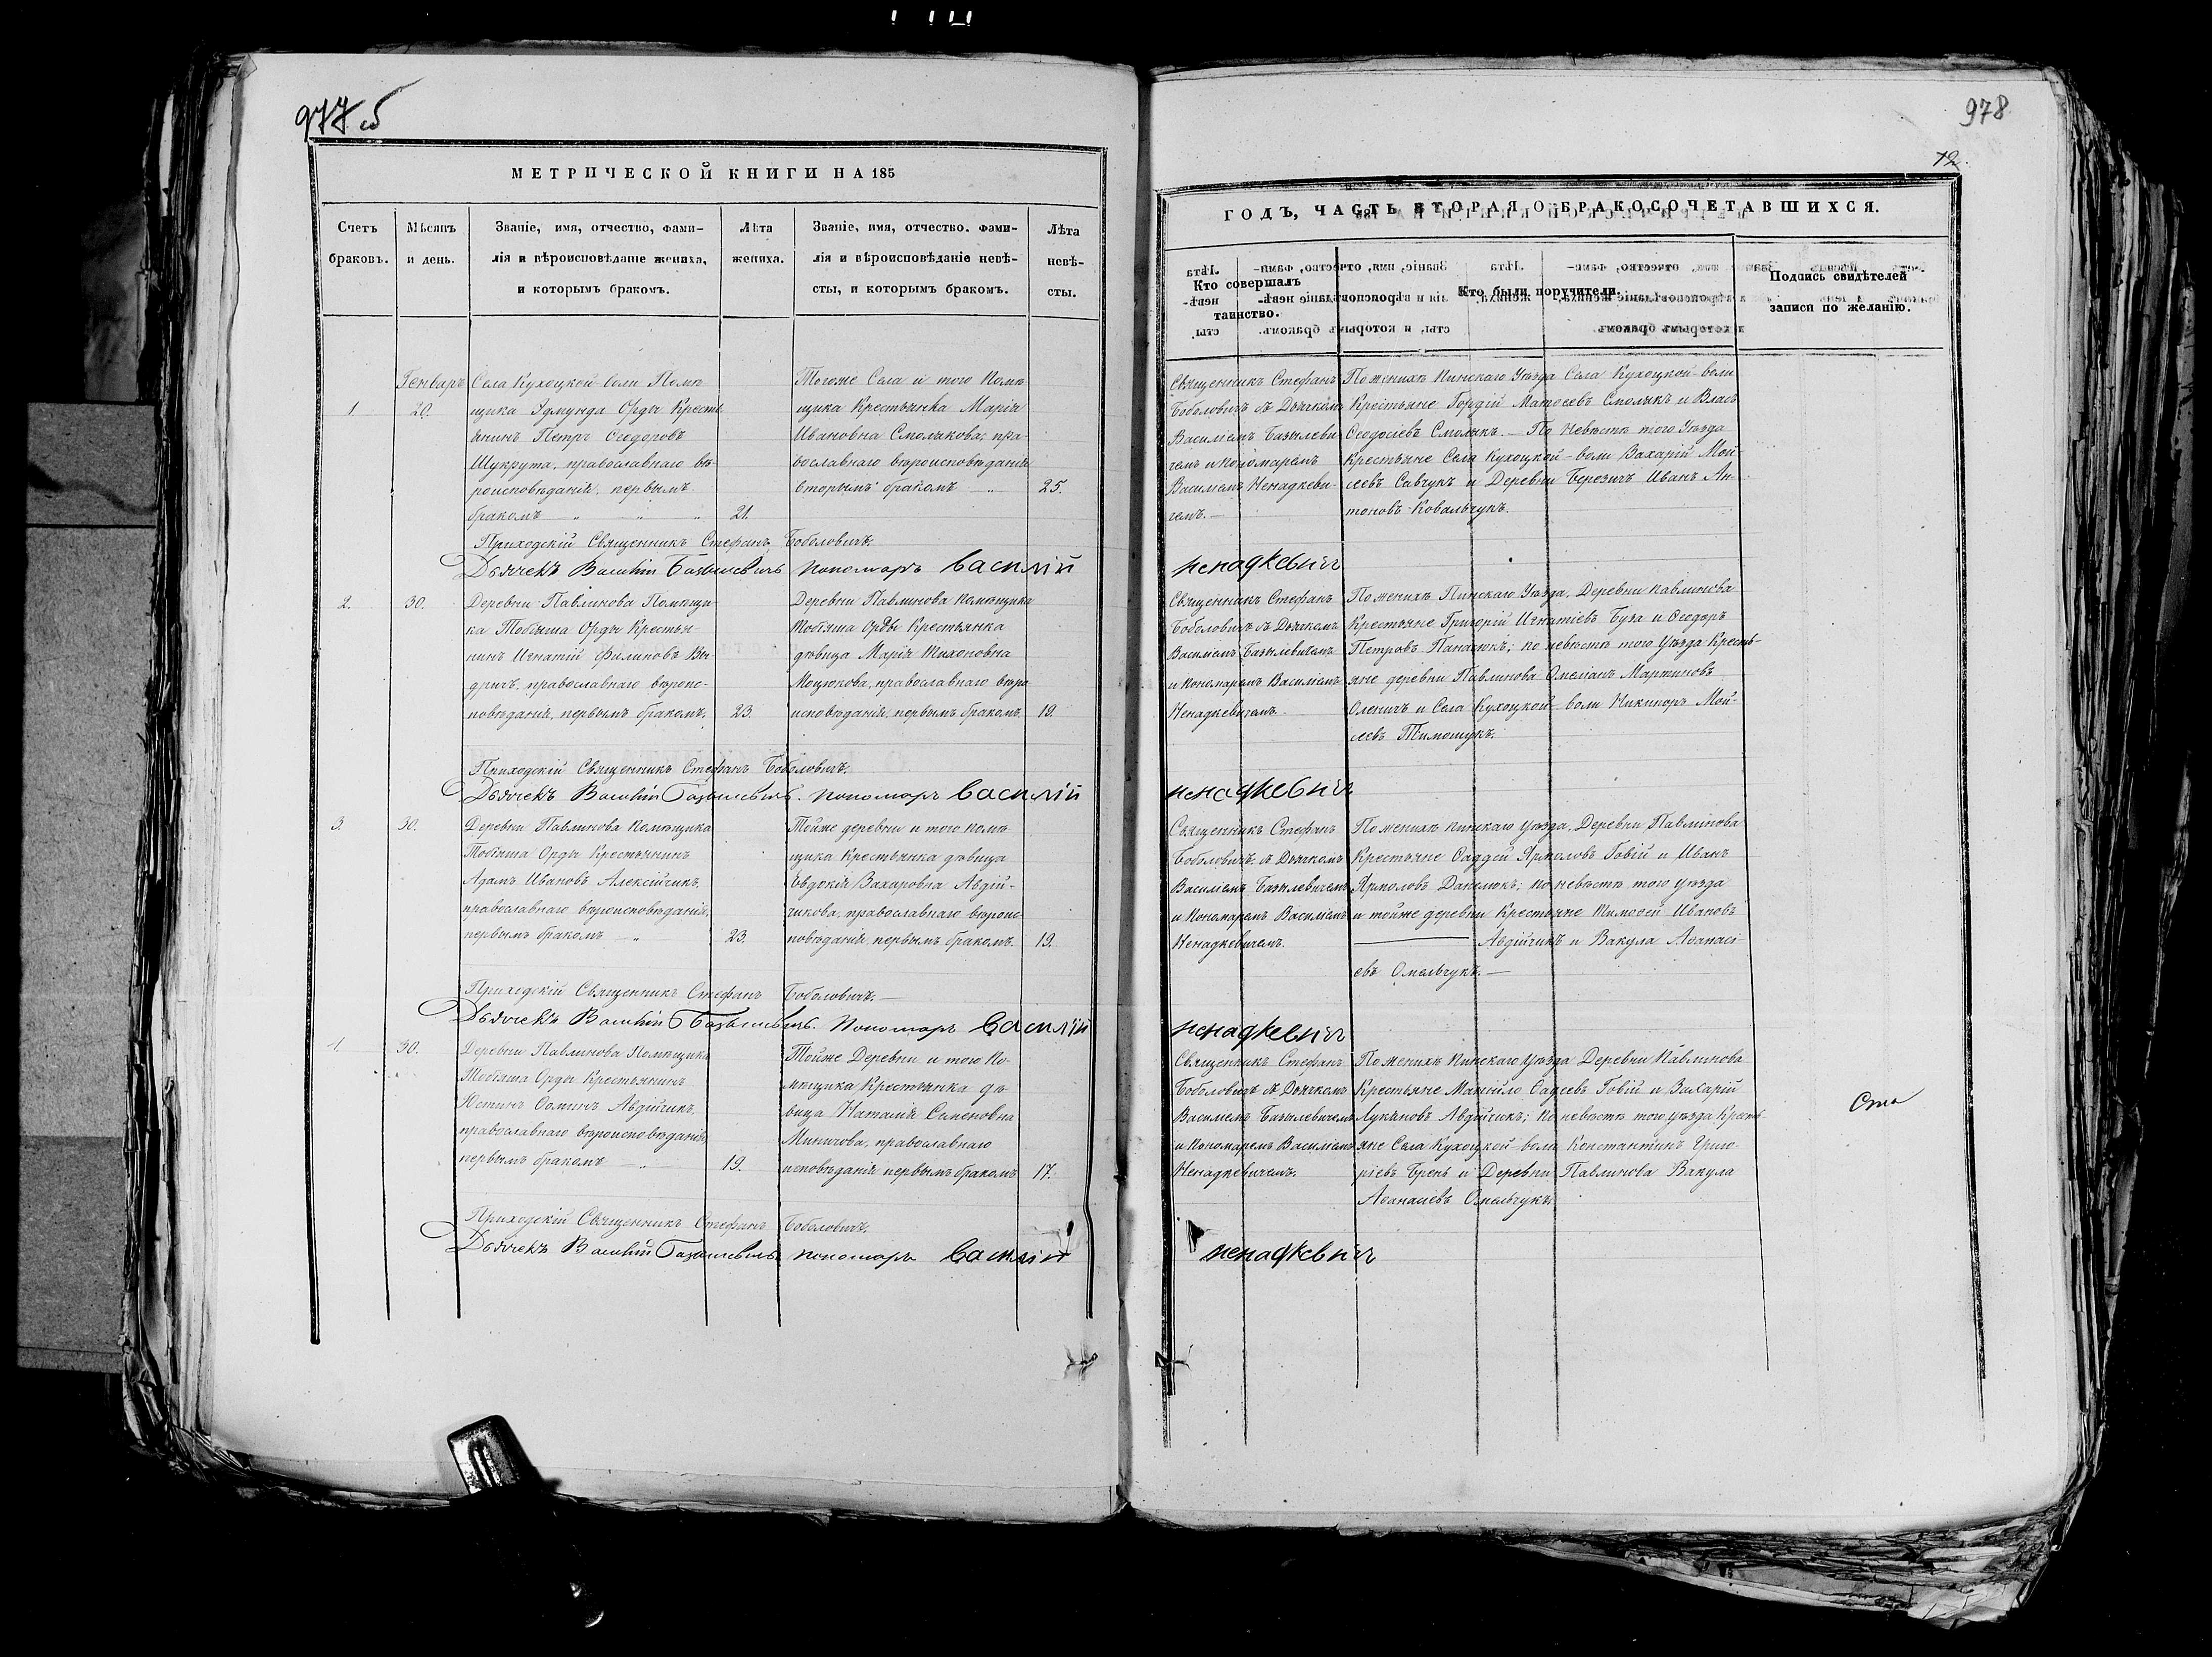 977 об
МЕТРИЧЕСКОЙ КНИГИ НА 185
Счетъ браковъ.
Мѣсяцъ и день.
Званіе, имя, отчество, фами-
лія и вѣроисповѣданіе жениха,
и которымъ бракомъ.
Лѣта
жениха.
Званіе, имя, отчество, фами-
лія и вѣроисповѣданіе невѣ-
сты, и которымъ бракомъ.
Лѣта
невѣ-
сты.
1.
Генваръ
20.
Села Кухоцкой-воли Помѣ-
щика Эдмунда Орды Кресть-
янинъ Петръ Ѳеодоровъ
Шукрута, православнаго вѣ-
роисповѣданія, первымъ
бракомъ " " "
21.
Тогоже Села и того Помѣ-
щика Крестьянка Марія
Ивановна Смолякова, пра-
вославнаго вѣроисповѣданія
вторымъ бракомъ — "
25.
Приходскій Священникъ Стефанъ Боболовичъ.
Дьячекъ Василій Базылевичъ Пономарь Василій
2.
30.
Деревни Павлинова Помѣщи-
ка Тобіяша Орды Крестья-
нинъ Игнатій Филиповъ
дричъ, православнаго вѣроис-
повѣданія, первымъ бракомъ.
23.
Деревни Павлинова Помѣщика
Тобіяша Орды Крестьянка
дѣвица Марія Тихоновна
Моцюкова, православнаго вѣро
исповѣданія, первымъ бракомъ.
19.
Приходскій Священникъ Стефанъ Боболовичъ.
Дьячекъ Василій Базылевичъ. Пономарь Василій
3.
30.
Деревни Павлинова Помѣщика
Тобіяша Орды Крестьянинъ
Адамъ Ивановъ Алексійчикъ,
православнаго вѣроисповѣданія,
первымъ бракомъ — "
23.
Тойже деревни и того помѣ-
щика Крестьянка дѣвица
Евдокія Захаровна Авдій-
чикова, православнаго вѣроис-
повѣданія, первымъ бракомъ.
19.
Приходскій Священникъ Стефанъ Боболовичъ. —
Дьячекъ Василій Базылевичъ. Пономарь Василій
4.
30.
Деревни Павлинова Помѣщика
Тобіяша Орды Крестьянинъ
Юстинъ Ѳоминъ Авдійчикъ,
православнаго вѣроисповѣданія,
первымъ бракомъ — "
19.
Тойже Деревни и того По-
мѣщика Крестьянка дѣ-
вица Наталія Семеновна
Миничова, православнаго
исповѣданія первымъ бракомъ
17.
Приходскій Священникъ Стефанъ Боболовичъ.
Дьячекъ Василій Базылевичъ Пономарь Василій
978
12.
ГОДЪ, ЧАСТЬ ВТОРАЯ О БРАКОСОЧЕТАВШИХСЯ.
Кто совершалъ
таинство.
Кто были поручители.
Подпись свидѣтелей
записи по желанію.
Священникъ Стефанъ
Боболовичъ съ Дьячкомъ
Василіемъ Базылеви-
чемъ и пономаремъ
Василіемъ Ненадкеви-
чемъ. —
По женихѣ Пинскаго Уѣзда Села Кухоцкой-воли
Крестьяне Гордій Матѳеевъ Смолякъ и Власъ
Ѳеодосіевъ Смолякъ. — По Невѣстѣ того Уѣзда
Крестьяне Села Кухоцкой-воли Захарій Мой-
сеевъ Савчукъ и Деревни Березичъ Иванъ Ан-
тоновъ Ковальчукъ.
Ненадкевичъ
Священникъ Стефанъ
Боболовичъ съ Дьячкомъ
Василіемъ Базылевичемъ
и Пономаремъ Василіемъ
Ненадкевичемъ.
По женихѣ Пинскаго Уѣзда, Деревни Павлинова
Крестьяне Григорій Игнатіевъ Буза и Ѳеодоръ
Петровъ Панасюкъ; по невѣстѣ того Уѣзда Кресть-
яне деревни Павлинова Омеліанъ Мартиновъ
Оленичъ и Села Кухоцкой-воли Никипоръ Мой-
сеевъ Тимошукъ.
Ненадкевичъ
Священникъ Стефанъ
Боболовичъ съ Дьячкомъ
Василіемъ Базылевичемъ
и Пономаремъ Василіемъ
Ненадкевичемъ.
По женихѣ Пинскаго Уѣзда, Деревни Павлинова
Крестьяне Ѳаддей Ярмоловъ Говій и Иванъ
Ярмоловъ Данелюкъ; по невѣстѣ того уѣзда
и тойже деревни Крестьяне Тимоѳей Ивановъ
Авдійчикъ и Вакула Аѳанасі-
евъ Омельчукъ. —
Ненадкевичъ
Священникъ Стефанъ
Боболовичъ съ Дьячкомъ
Василіемъ Базылевичемъ
и Пономаремъ Василіемъ
Ненадкевичемъ.
По женихѣ Пинскаго уѣзда Деревни Павлинова
Крестьяне Манойло Ѳадеевъ Говій и Захарій
Лукьяновъ Авдійчикъ; по невѣстѣ того уѣзда Кресть-
яне Села Кухоцкой-воли Константинъ Григо-
ріевъ Брень и Деревни Павлинова Вакула
Аѳанасіевъ Омельчукъ.
Ненадкевичъ